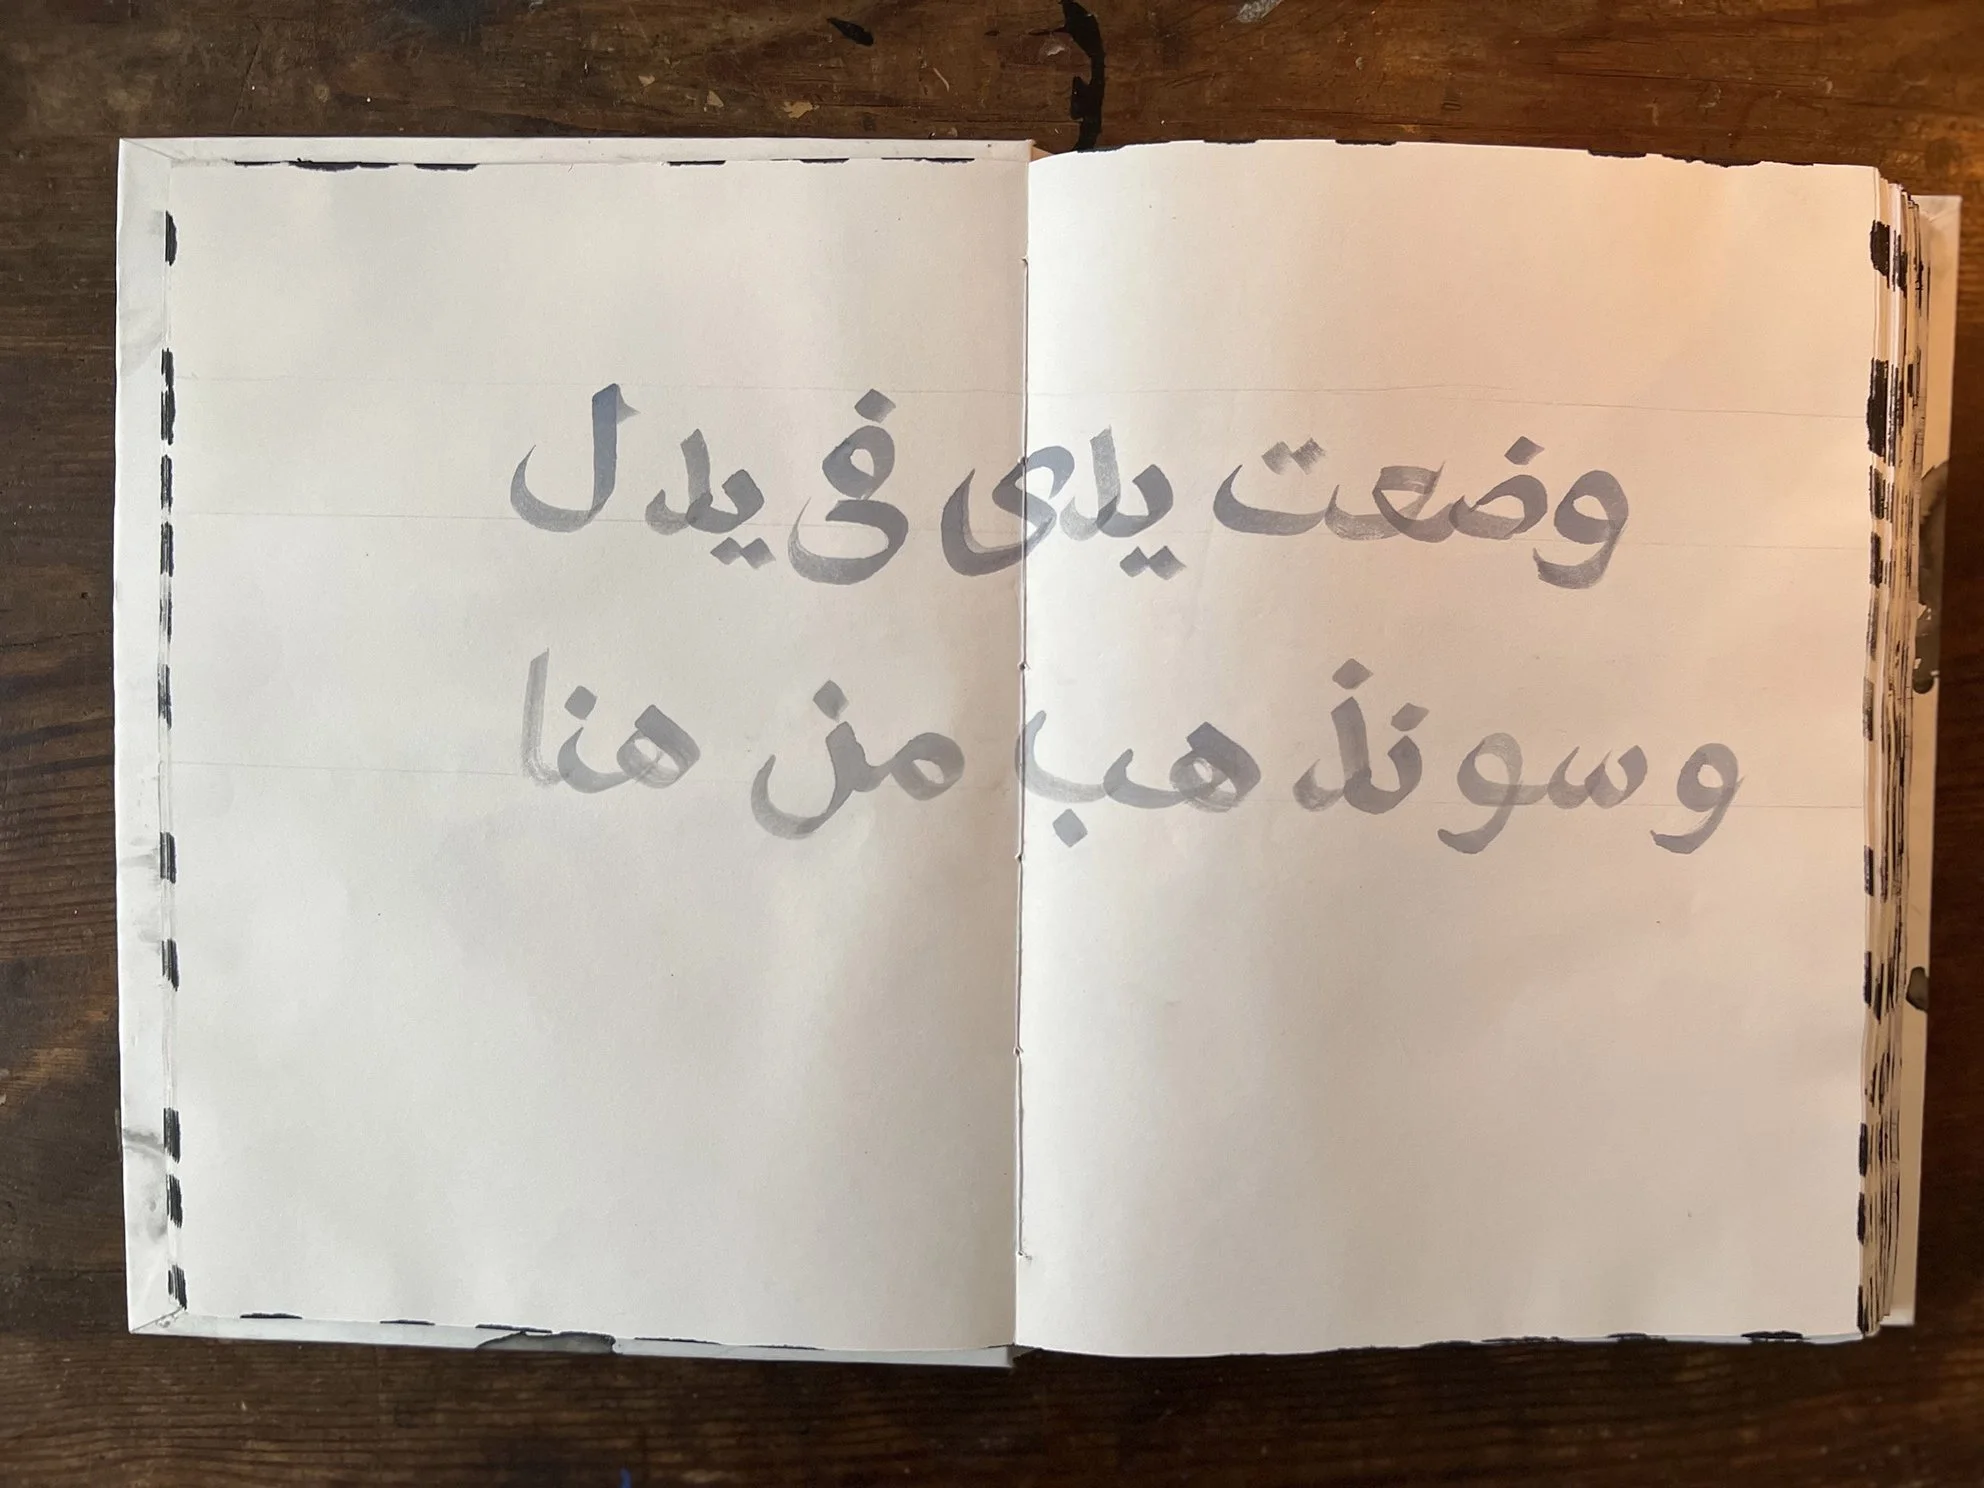 وضعت يدى فى يدل
وسو نذهب من هنا